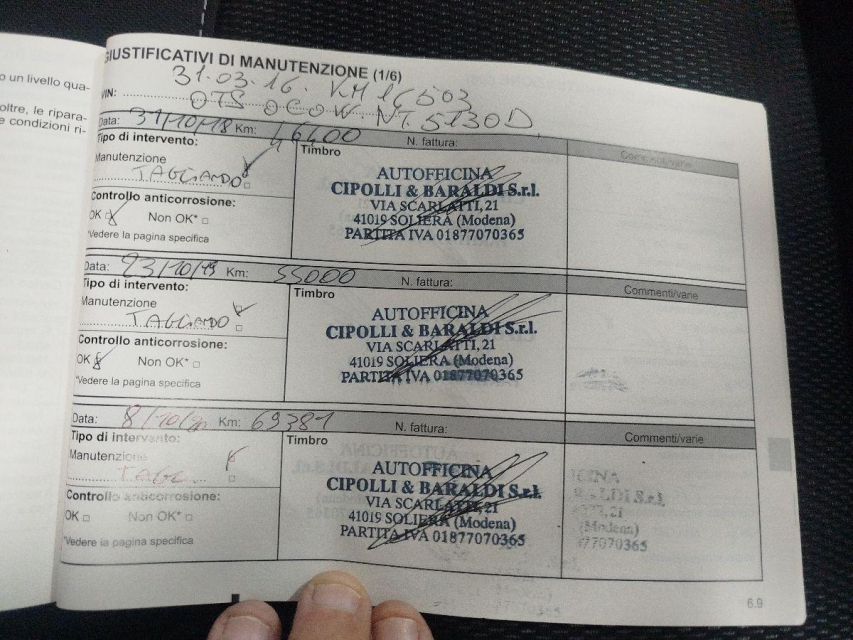 o un livello qua-
oltre, le ripara-
e condizioni ri-
GIUSTIFICATIVI DI MANUTENZIONE (1/6)
31.03.16. KM 16503
VIN:
OTS 0C0W. NT. 5130D
Data: 31/10/18 Km: 46400 N. fattura: Commenti/varie
Tipo di intervento: Timbro
Manutenzione
TAGLIANDO
Controllo anticorrosione:
OK Non OK*
*Vedere la pagina specifica
AUTOFFICINA
CIPOLLI & BARALDI S.r.l.
VIA SCARLATTI, 21
41019 SOLIERA (Modena)
PARTITA IVA 01877070365
Data: 23/10/19 Km: 55000 N. fattura: Commenti/varie
Tipo di intervento: Timbro
Manutenzione
TAGLIANDO
Controllo anticorrosione:
OK Non OK*
*Vedere la pagina specifica
AUTOFFICINA
CIPOLLI & BARALDI S.r.l.
VIA SCARLATTI, 21
41019 SOLIERA (Modena)
PARTITA IVA 01877070365
Data: 8/10/20 Km: 69381 N. fattura: Commenti/varie
Tipo di intervento: Timbro
Manutenzione
TAGL.
Controllo anticorrosione:
OK Non OK*
*Vedere la pagina specifica
AUTOFFICINA
CIPOLLI & BARALDI S.r.l.
VIA SCARLATTI, 21
41019 SOLIERA (Modena)
PARTITA IVA 01877070365
ICINA
RALDI S.r.l.
(Modena)
77070365
6.9